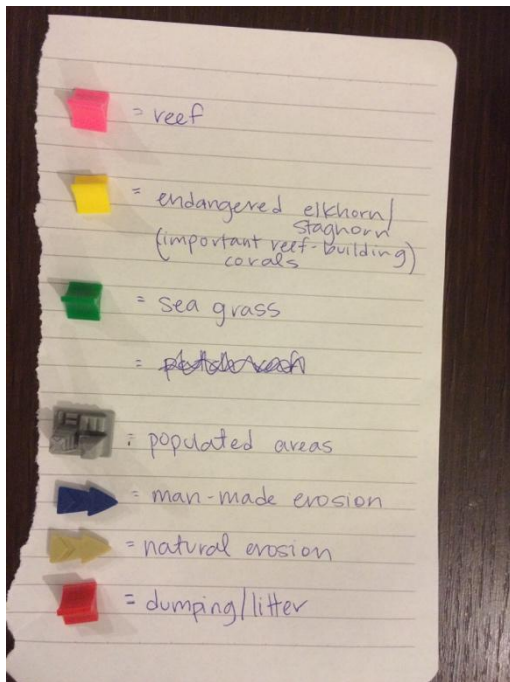 = reef
= endangered elkhorn/
staghorn
(important reef-building)
corals
= sea grass
=
: populated areas
= man-made erosion
= natural erosion
= dumping/litter